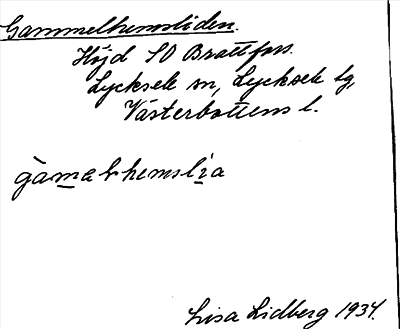 Gammelhemsliden.
Höjd SO Brattfors.
Lycksele sn, Lycksele lg,
Västerbottens l.
gàmalhemslia
Lisa Lidberg 1934.